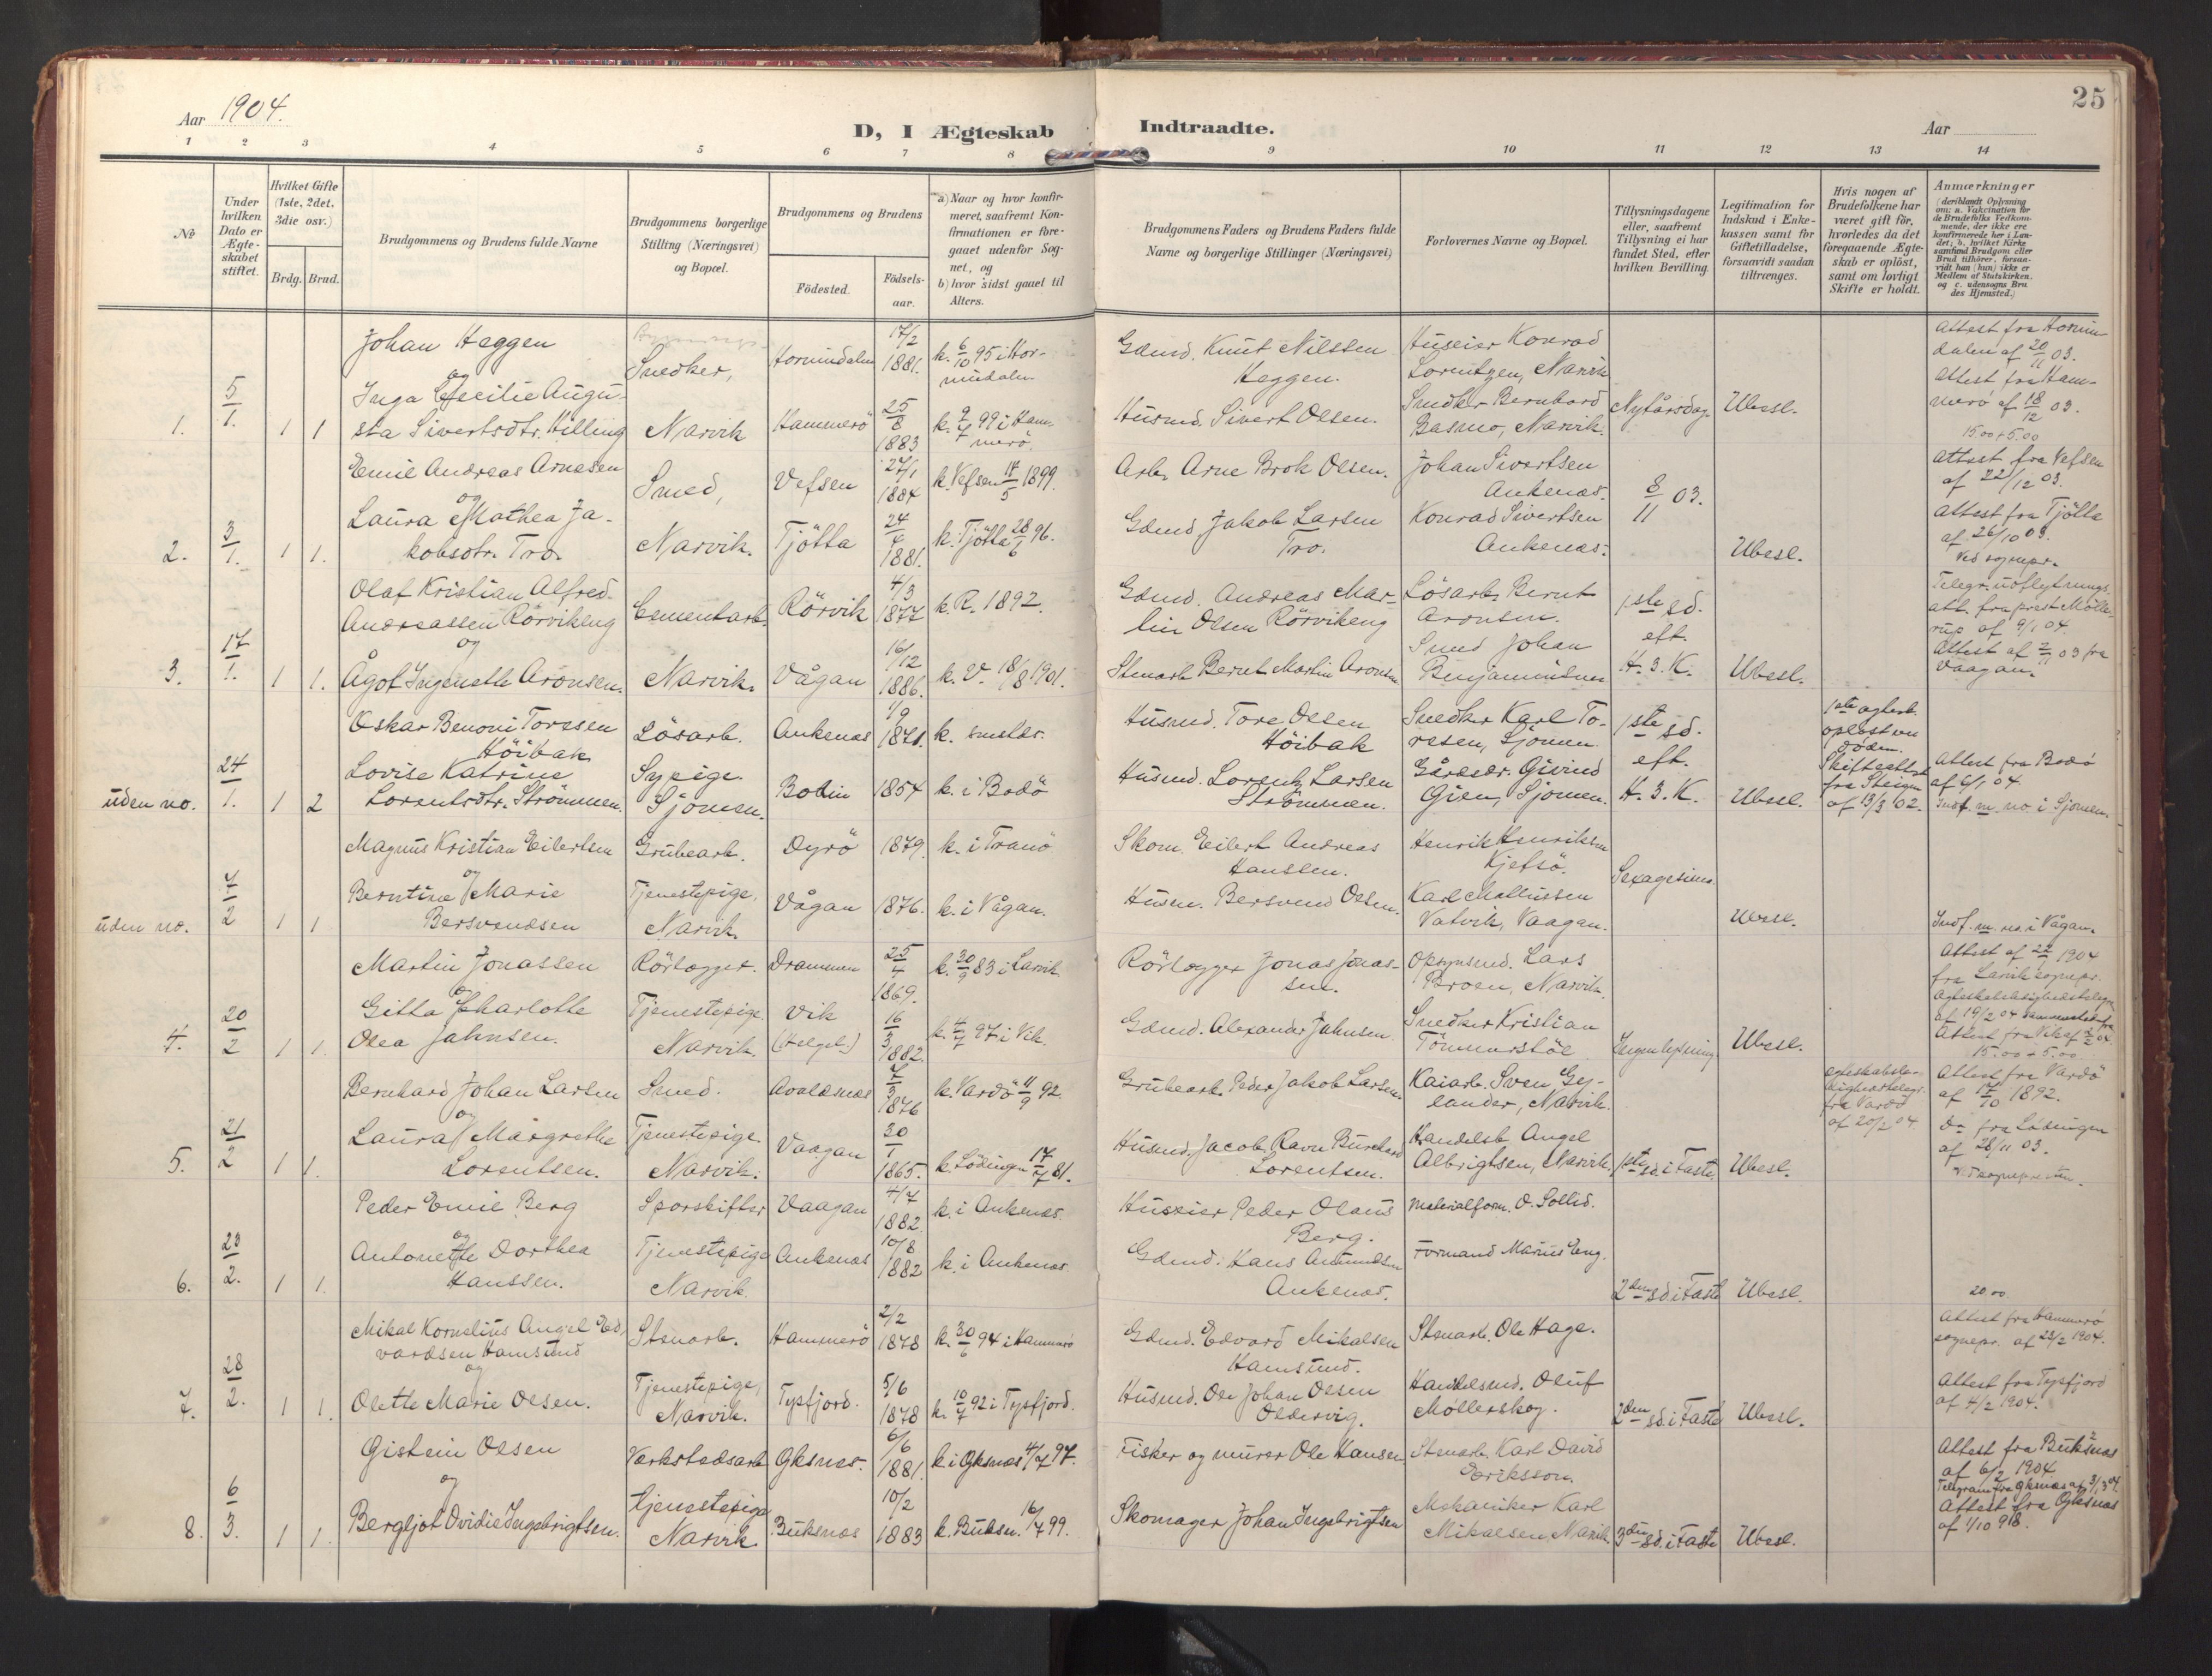 25
Aar 1904.
D, I Ægteskab Indtraadte.
Aar
1 2 3 4 5 6 7 8 9 10 11 12 13 14
No
Under hvilken Dato er Ægteskabet stiftet.
Hvilket Gifte (1ste, 2det, 3die osv.)
Brdg. Brud.
Brudgommens og Brudens fulde Navne
Brudgommens borgerlige Stilling (Næringsvei) og Bopæl.
Brudgommens og Brudens
Födested.
Födselsaar.
a) Naar og hvor konfirmeret, saafremt Konfirmationen er foregaaet udenfor Sognet, og
b) hvor sidst gaaet til Alters.
Brudgommens Faders og Brudens Faders fulde Navne og borgerlige Stillinger (Næringsvei)
Forlovernes Navne og Bopæl.
Tillysningsdagene eller, saafremt Tillysning ei har fundet Sted, efter hvilken Bevilling.
Legitimation for Indskud i Enkekassen samt for Giftetilladelse, forsaavidt saadan tiltrænges.
Hvis nogen af Brudefolkene har været gift för, hvorledes da det foregaaende Ægteskab er oplöst, samt om lovligt Skifte er holdt.
Anmærkninger
(deriblandt Oplysning om: a. Vakcination for de Brudefolks Vedkommende, der ikke ere konfirmerede her i Landet; b. hvilket Kirkesamfund Brudgom eller Brud tilhörer, forsaavidt han (hun) ikke er Medlem af Statskirken, og c. udensogns Brudes Hjemsted.)
1. 5/1. 1 1
Johan Heggen
og
Inga Cecilie Augusta Sivertsdtr. Killing
Snedker,
Narvik
Hornindalen 17/2 1881. k. 6/10 95 i Hornindalen
Hammerö 25/8 1883 k. 2/7 99 i Hammerö
Gdmd. Knut Nilssen Heggen.
Husmd. Sivert Olsen.
Huseier Konrad Lorentzen, Narvik
Snedker Bernhard Basmo, Narvik.
Nytårsdag Ubesl.
Attest fra Hornindalen af 20/11 03.
Attest fra Hammerö af 18/12 03.
15.00 + 5.00
2. 3/1. 1 1.
Emil Andreas Arnesen
og
Laura Mathea Jakobsdtr. Tro.
Smed,
Narvik.
Vefsen 27/1 1884 k. Vefsen 14/5 1899.
Tjötta 24/4 1881. k. Tjötta 28/6 96.
Arb. Arne Brok Olsen.
Gdmd. Jakob Larsen Tro.
Johan Sivertsen Ankenæs.
Konrad Sivertsen Ankenæs.
8/11 03.
Ubesl.
Attest fra Vefsen af 22/12 03.
Attest fra Tjötta af 26/10 03.
Ved sognepr.
3. 17/1. 1 1.
Olaf Kristian Alfred Andreassen Rörvikeng
og
Ågot Ingenette Aronsen.
Cementarb.
Narvik.
Rörvik 4/3 1877 k. R. 1892.
Vågan 16/12 1886. k. V. 18/8 1901.
Gdmd. Andreas Martin Olsen Rörvikeng
Stenarb. Bernt Martin Aronsen
Lösarb. Bernt Aronsen.
Smed Johan Benjaminsen
1ste sd. eft. H. 3. K. Ubesl.
Telegr. udflytningsatt. fra prest Möllerup af 9/1 04.
Attest af 2/11 03 fra Vaagan.
uden no. 24/1. 1 2
Oskar Benoni Toresen Höibak
Lovise Katrine Lorentsdtr. Strömmen.
Lösarb.
Sypige
Sjomen.
Ankenæs 1/9 1871. k. smstds.
Bodin 1854 k. i Bodö
Husmd. Tore Olsen Höibak
Husmd. Lorentz Larsen Strömmen.
Snedker Karl Toresen, Sjomen.
Gien, Sjomen.
1ste sd. eft. H. 3. K. Ubesl.
1ste egtesk. oplöst ved döden. Skifteattest fra Steigen af 13/3 02.
Attest fra Bodö af 6/1 04.
Indf. m. no. i Sjomen.
uden no. 7/2 1 1
Magnus Kristian Eilertsen
og
Berntine Marie Bersvendsen
Grubearb.
Tjenestepige,
Narvik.
Dyrö 1879. k. i Tranö
Vågan 1876. k. i Vågan.
Skom. Eilert Andreas Hanssen.
Husm. Bersvend Olsen.
Henrik Henriksen Kjefsö.
Karl Mathissen Vatvik, Vaagan.
Sexagesima.
Ubesl.
Indf. m. no. i Vågan.
4. 20/2 1 1.
Martin Jonassen
og
Gitta Charlotte Olea Jahnsen.
Rörlægger.
Tjenestepige.
Narvik.
Drammen 25/4 1869. k. 30/9 83 i Larvik
Vik (Helgel.) 16/3 1882. k. 4/7 97 i Vik.
Rörlægger Jonas Jonassen.
Gdmd. Alexander Jahnsen
Opsynsmd. Lars Broen, Narvik.
Snedker Kristian Tömmerstöl
Ingen lysning Ubesl.
Attest af 22/1 1904 fra Larvik sognepr.
af 19/2 04
Attest fra Vik af 2/2 04.
15.00 + 5.00
5. 21/2 1 1.
Bernhard Johan Larsen
og
Laura Margrethe Lorentsen.
Smed.
Tjenestepige
Narvik.
Avaldsnes 7/3 1876 k. Vardö 11/9 92.
Vaagan 30/1 1865. k. Lödingen 17/7 81.
Grubearb. Peder Jakob Larsen
Husmd. Jacob Ravn Burchard Lorentsen.
Kaiarb. Sven Gylander, Narvik.
Handelsb. Angel Albrigtsen, Narvik.
1ste sd. i Faste Ubesl.
fra Vardö af 20/2 04
Attest fra Vardö af 14/10 1892.
Do fra Lödingen af 28/11 03.
V. sognepresten.
6. 23/2. 1 1.
Peder Emil Berg
og
Antonette Dorthea Hanssen.
Sporskifter
Tjenestepige
Narvik.
Vaagan 4/7 1882. k. i Ankenæs
Ankenæs 10/8 1882 k. i Ankenæs
Huseier Peder Olaus Berg.
Gdmd. Hans Amundsen Ankenæs.
Materialform. O. Sollid.
Formand Marius Eng.
2den sd i Faste Ubesl.
20.00
7. 28/2. 1 1.
Mikal Kornelius Angel Edvardsen Hamsund
og
Olette Marie Olsen.
Stenarb.
Tjenestepige,
Narvik.
Hammerö 2/2 1878 k. 30/6 94 i Hammerö
Tysfjord. 5/6 1878 k. 10/7 92 i Tysfjord.
Gdmd. Edvard Mikalsen Hamsund.
Husmd. Ole Johan Olsen Oldervig.
Stenarb. Ole Hage.
Handelsmd. Oluf Möllerskog.
2den sd. i Faste Ubesl.
Attest fra Hammerö sognepr. af 23/2 1904.
Attest fra Tysfjord af 4/2 1904.
8. 6/3. 1 1.
Gistein Olsen
og
Bergljot Ovidie Ingebrigtsen.
Værkstedsarb.
tjenestepige
Narvik
Öksnes. 6/6 1881. k. i Öksnes 4/7 97.
Buksnes 10/2 1883 k. Buksn. 16/7 99.
Fisker og murer Ole Hansen
Skomager Johan Ingebrigtsen
Stenarb. Karl David Eriksson.
Mekaniker Karl Mikaelsen, Narvik.
3die sd. i Faste Ubesl.
Attest fra Buksnæs af 6/2 1904.
Telegram fra Öksnæs af 3/3 04.
Attest fra Öksnæs